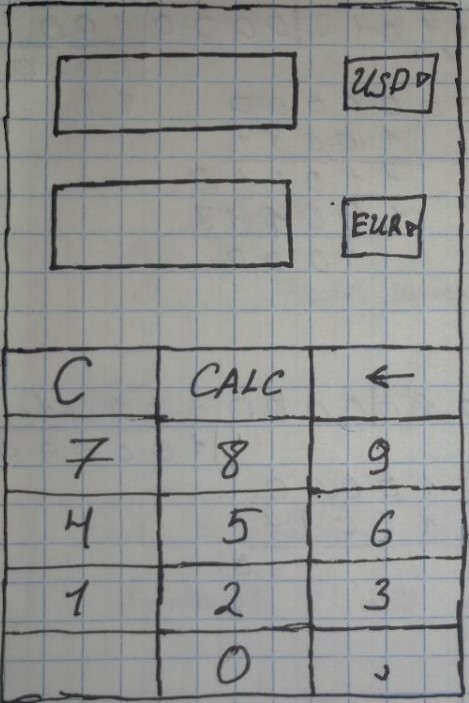 USD
EUR
C CALC ←
7 8 9
4 5 6
1 2 3
0 ,